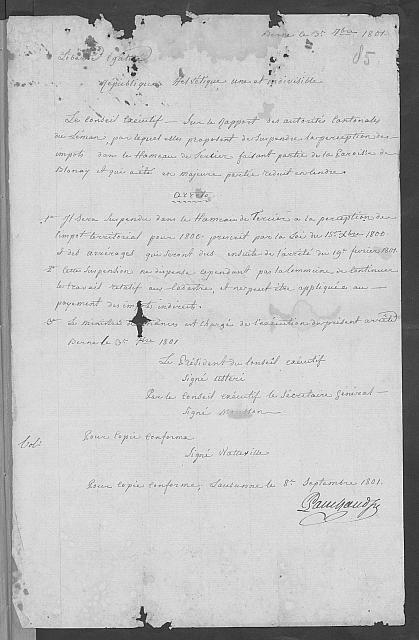 Berne le 3e 7bre 1801.
85
Liberté Egalité
République Helvétique une et indivisible
Le Conseil Executif — Sur le Rapport des autorités Cantonales
du Léman, par lequel elles proposent de Suspendre la perception des
impots dans le Hameau de Tercier faisant partie de la Paroisse de
Blonay et qui a été en majeure partie réduit en cendre.
arrête
1° Il Sera Suspendu dans le Hameau de Tercier a la perception de
l'impot territorial pour 1800 prescrit par la Loi du 15e Xbre 1800
et des arrerages qui seront dus ensuite de l'arrêté du 19e fevrier 1801.
2° Cette Suspension ne dispense cependant pas la Commune de Continuer
le travail relatif au Cadastre, et ne peut être appliquée au
payement des impots indirects.
3° Le Ministre des finances est chargé de l'execution du présent arrêté
Berne le 3e 7bre 1801
Le Président du Conseil exécutif
Signé Usteri
Par le Conseil exécutif le Secrétaire général
Signé Mousson
Pour Copie Conforme
Signé Watteville
Pour Copie Conforme, Lausanne le 8e Septembre 1801.
Panchaud